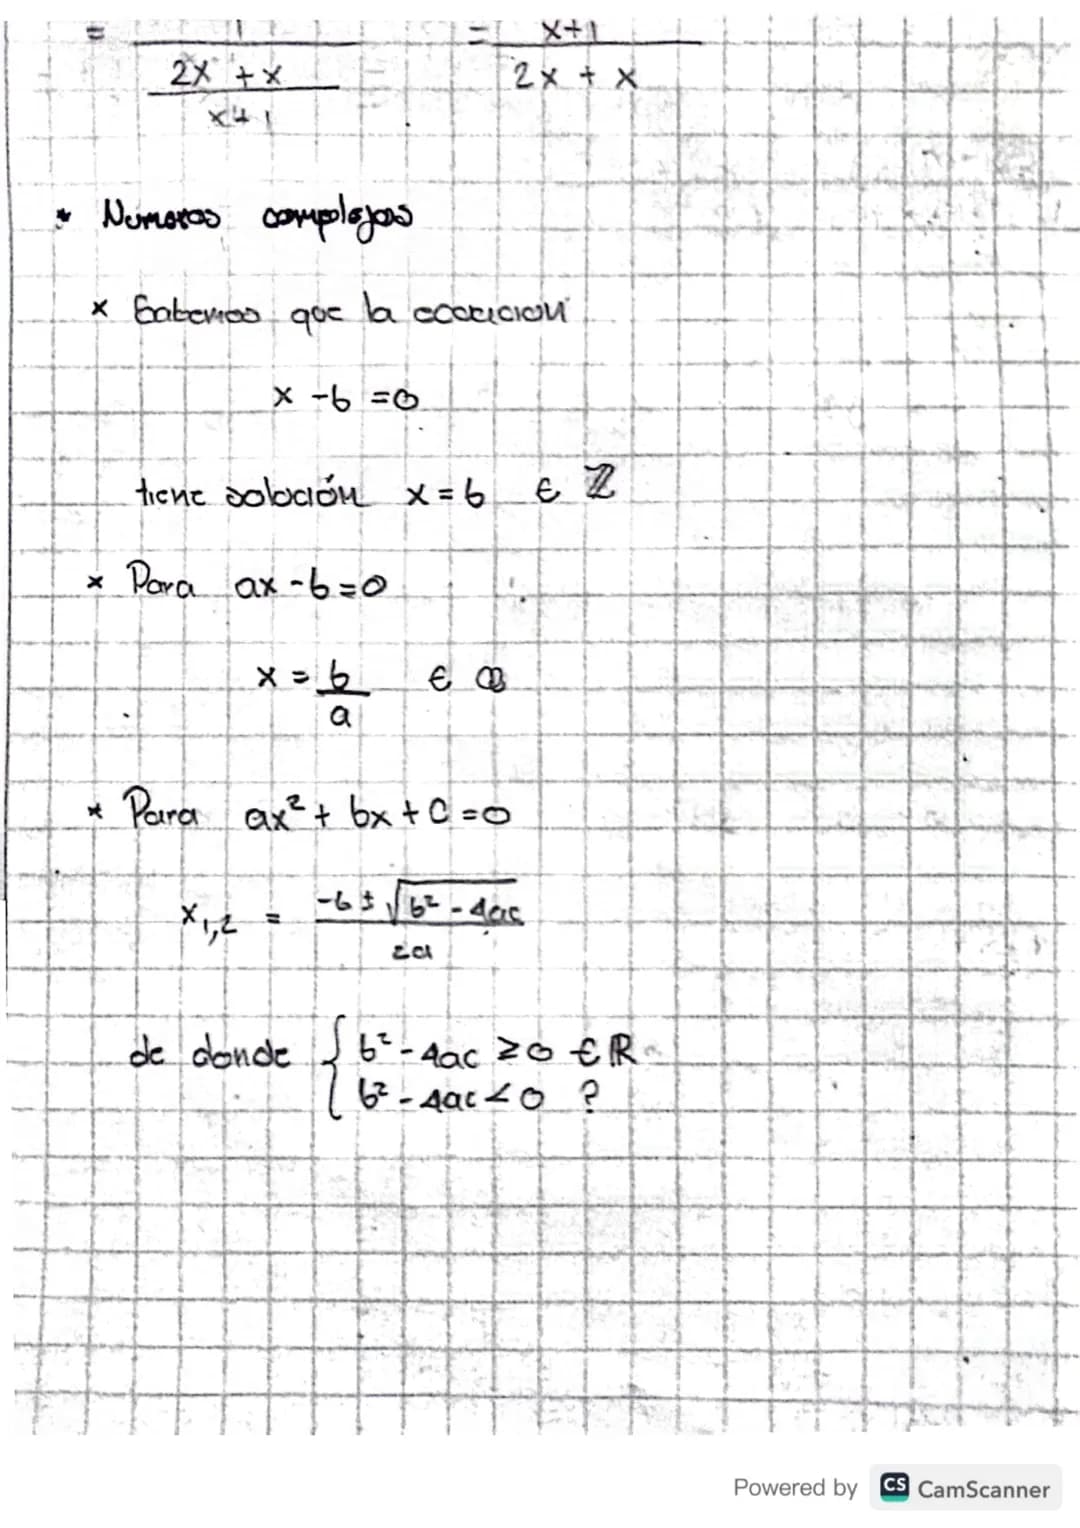 = 1 / (2x + x / x+1) = x+1 / 2x + x
* Numeros complejos
x Sabemos que la ecuacion
x - b = 0
tiene solución x = b ∈ ℤ
x Para ax - b = 0
x = b/a ∈ ℚ
* Para ax² + bx + c = 0
x₁,₂ = -b ± √(b² - 4ac) / 2a
de donde { b² - 4ac ≥ 0 ∈ ℝ
{ b² - 4ac < 0 ?
Powered by CS CamScanner